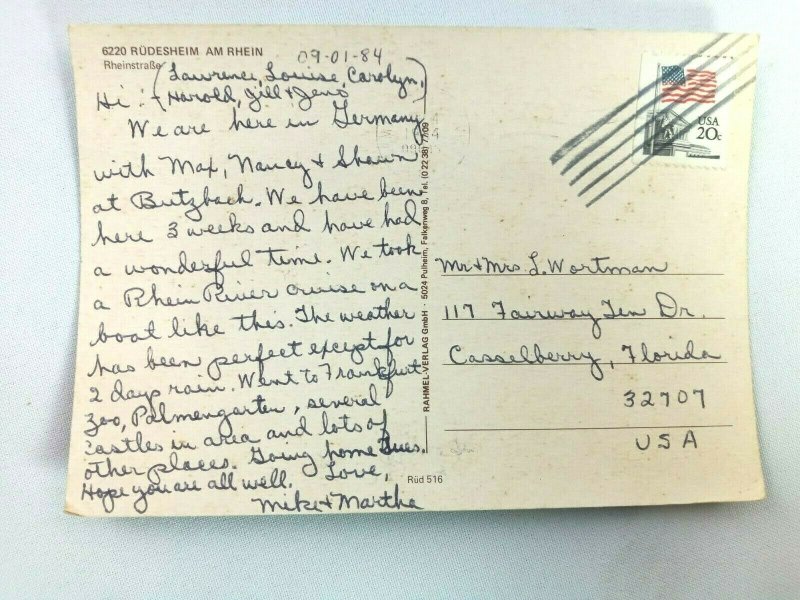 6220 RÜDESHEIM AM RHEIN
Rheinstraße
09-01-84
(Lawrence, Louise, Carolyn,
Hi: Harold, Jill & Jeno)
We are here in Germany
with Max, Nancy & Shawn
at Butzbach. We have been
here 3 weeks and have had
a wonderful time. We took
a Rhein River cruise on a
boat like this. The weather
has been perfect except for
2 days rain. Went to Frankfurt
Zoo, Palmengarten, several
castles in area and lots of
other places. Going home Tues.
Hope you are all well. Love,
Mike & Martha
RAHMEL-VERLAG GmbH · 5024 Pulheim, Falkenweg 8, Tel. (0 22 38) 77 09
Rüd 516
USA
20c
Mr & Mrs L. Wortman
117 Fairway Ten Dr.
Casselberry, Florida
32707
USA